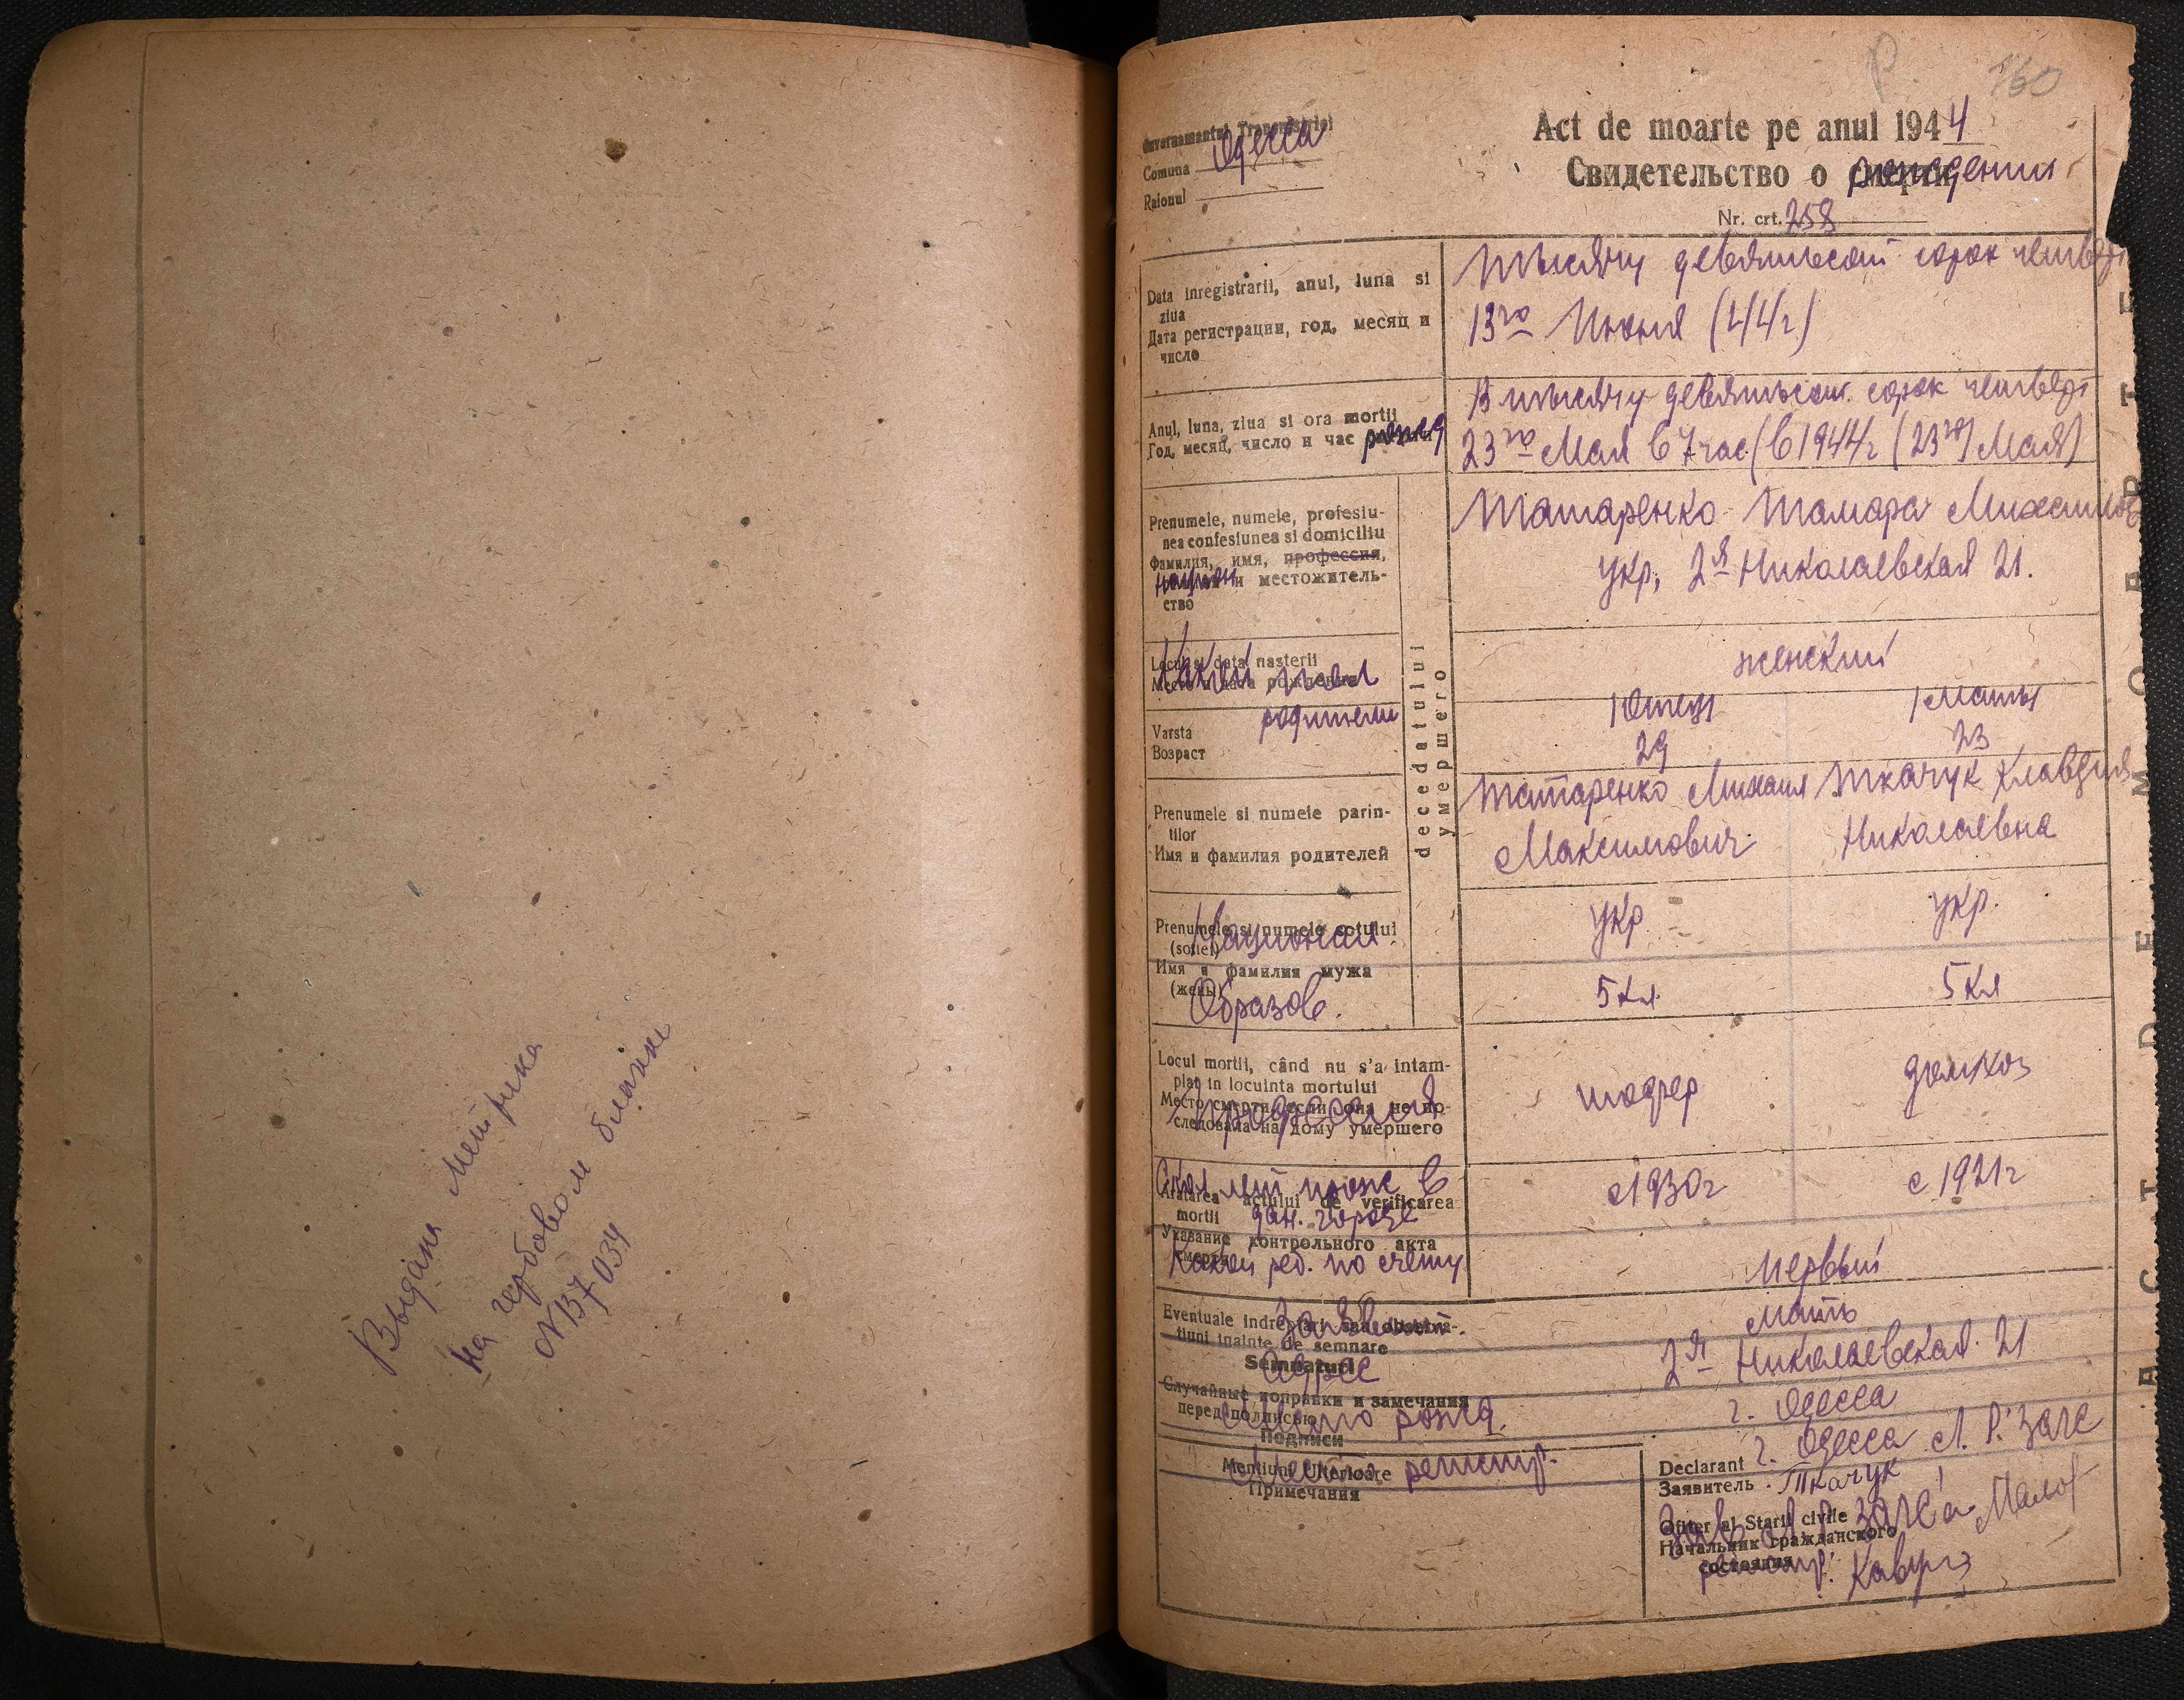 Выдана метрика
на гербовом бланке
N 137034
160
Р
Guvernamantul Transnistriei
Comuna Одесса
Raionul
Act de moarte pe anul 1944
Свидетельство о рождении
Nr. crt. 258
Data inregistrarii, anul, luna si
ziua
Дата регистрации, год, месяц и
число
Тысячу девятьсот сорок четвер
13го Июня (44г)
Anul, luna, ziua si ora mortii
Год, месяц, число и час рожд
В тысячу девятьсот. сорок четвер
23го Мая в 7 час (в 1944г (23го) Мая)
Prenumele, numele, profesiu-
nea confesiunea si domiciliu
Фамилия, имя, профессия,
национ и местожитель-
ство
Татаренко Тамара Михайлов
укр, 2я Николаевская 21.
decedatului
умершего
Locul si data nasterii
Место и дата рождения
Какой пол
женский
Varsta
Возраст
родители
1 Отец 1 Мать
29 23
Prenumele si numele parin-
tilor
Имя и фамилия родителей
Татаренко Михаил Ткачук Клавдия
Максимович Николаевна
Prenumele si numele sotului
(sotiei)
Национал.
укр укр.
Имя и фамилия мужа
(жены)
Образов.
5 кл. 5 кл
Locul mortii, când nu s'a intam-
plat in locuinta mortului
Место смерти, если она не по-
следовала на дому умершего
Профессия
шофер домхоз
Aratarea actului de verificarea
mortii
Указание контрольного акта
смерти
Скол лет прож в
дан. городе
с 1930г с 1921г
Какой реб. по счету
первый
Eventuale indreptari sau observa-
tiuni inainte de semnare
Semnaturi
Случайные поправки и замечания
перед подписью
Подписи
Заявит.
мать
Адрес
2я Николаевская 21
Место рожд.
г. Одесса
Место регистр.
г. Одесса Л. Р. Загс
Mentiuni Ulterioare
Примечания
Declarant
Заявитель Ткачук
Ofiter al Starii civile
Начальник гражданского
состояния
Зав Л. Р. Загс'а
регистр.
ACT DE MOARTE